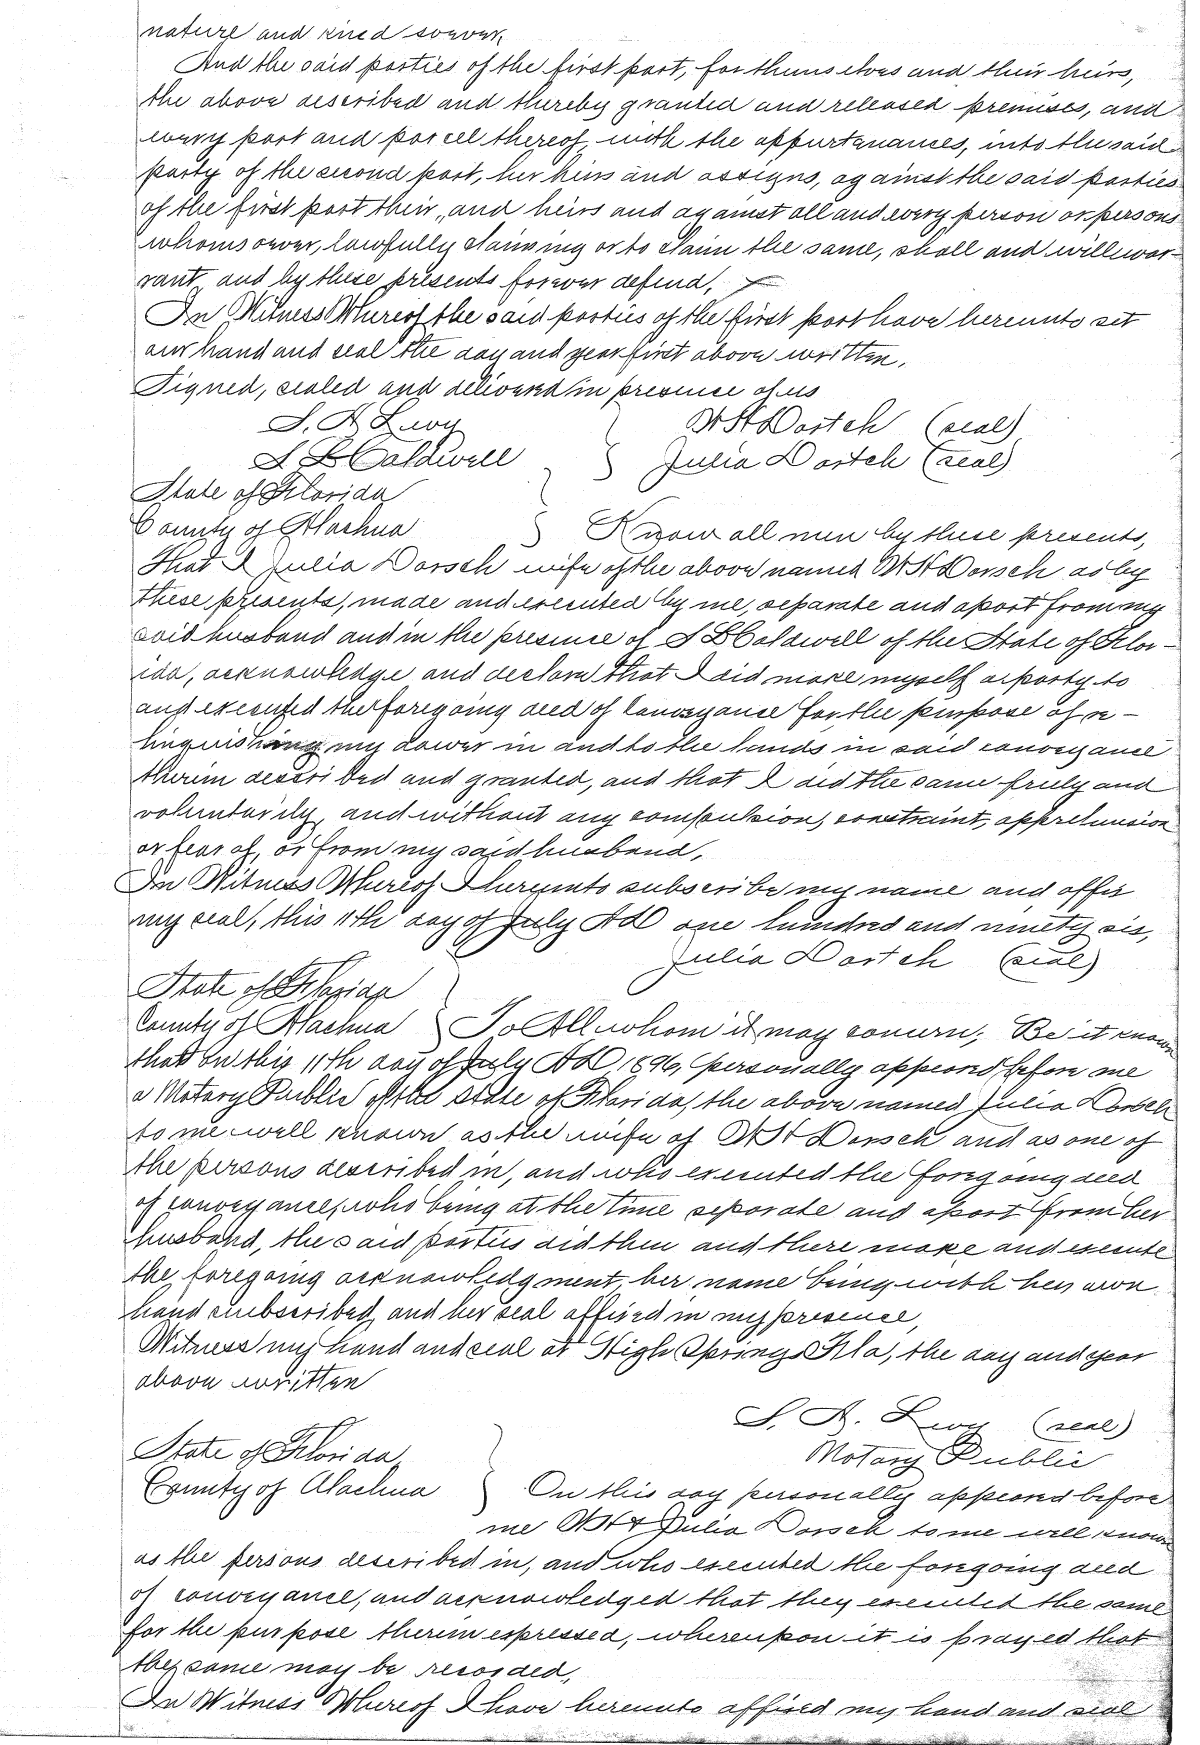 nature and kind soever,
And the said parties of the first part, for themselves and their heirs,
the above described and thereby granted and released premises, and
every part and parcel thereof, with the appurtenances, into the said
party of the second part, her heirs and assigns, against the said parties
of the first part their, and heirs and against all and every person or persons
whomsoever, lawfully claiming or to claim the same, shall and will war-
rant and by these presents forever defend,
In Witness Whereof the said parties of the first part have hereunto set
our hand and seal the day and year first above written.
Signed, sealed and delivered in presence of us
S. A. Levy W H Dortch (seal)
S B Caldwell Julia Dortch (seal)
State of Florida
County of Alachua Know all men by these presents,
That I Julia Dorsch wife of the above named W H Dorsch as by
these presents, made and executed by me, separate and apart from my
said husband and in the presence of S B Caldwell of the State of Flor-
ida, acknowledge and declare that I did make myself a party to
and executed the foregoing deed of conveyance for the purpose of re-
linquishing my dower in and to the lands in said conveyance
therein described and granted, and that I did the same freely and
voluntarily, and without any compulsion, constraint, apprehension
or fear of, or from my said husband,
In Witness Whereof I hereunto subscribe my name and affix
my seal, this 11th day of July AD one hundred and ninety six,
Julia Dortch (seal)
State of Florida
County of Alachua To All whom it may concern, Be it known
that on this 11th day of July AD 1896, personally appeared before me
a Notary Public of the State of Florida, the above named Julia Dorsch
to me well known as the wife of W H Dorsch and as one of
the persons described in, and who executed the foregoing deed
of conveyance, who being at the time separate and apart from her
husband, the said parties did then and there make and execute
the foregoing acknowledgment, her name being with her own
hand subscribed, and her seal affixed in my presence,
Witness my hand and seal at High Springs Fla, the day and year
above written
S. A. Levy (seal)
State of Florida, Notary Public
County of Alachua On this day personally appeared before
me W H & Julia Dorsch to me well known
as the persons described in, and who executed the foregoing deed
of conveyance, and acknowledged that they executed the same
for the purpose therein expressed, whereupon it is prayed that
the same may be recorded,
In Witness Whereof I have hereunto affixed my hand and seal